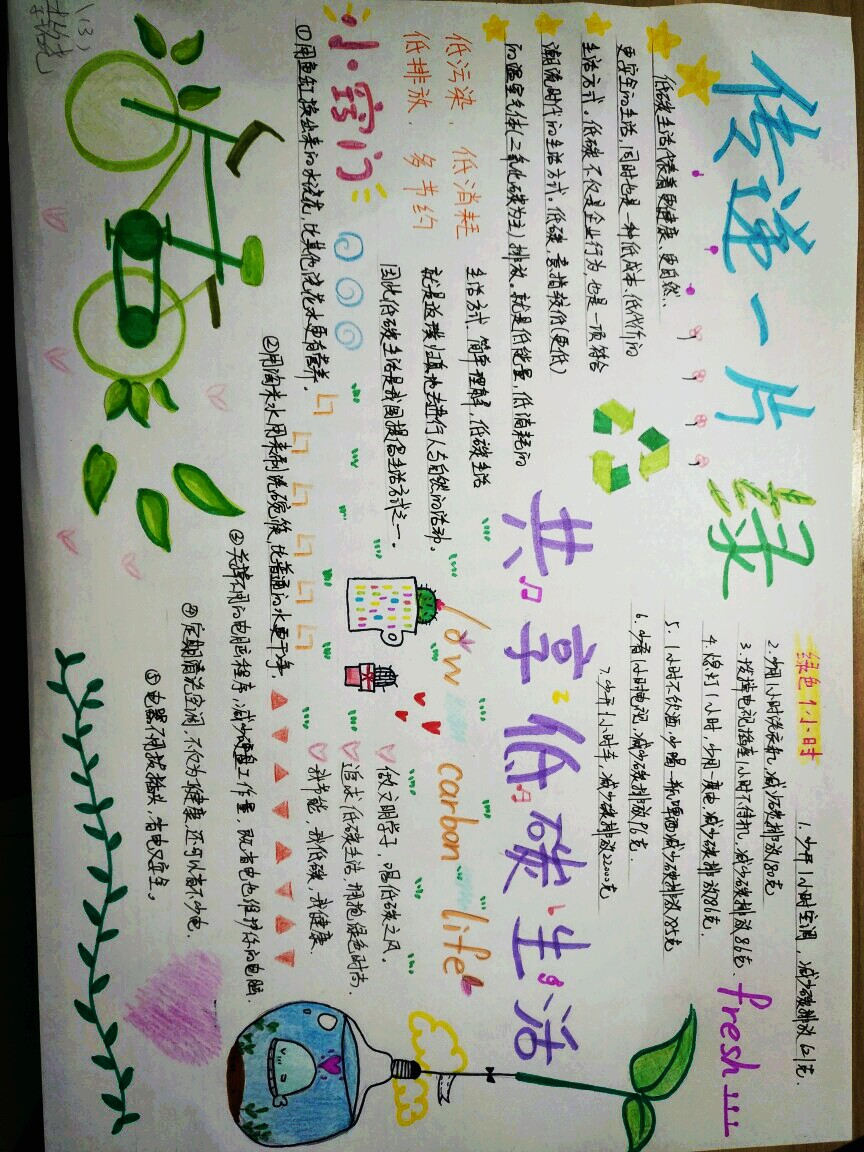 传递一片绿
共享低碳生活
低碳生活代表着更健康、更自然、
更安全的生活,同时也是一种低成本、低代价的
生活方式。低碳不仅是企业行为,也是一项符合
潮流时代的生活方式。低碳,意指较低(更低)
的温室气体(二氧化碳为主)排放。就是低能量、低消耗的
生活方式。简单理解,低碳生活
就是返璞归真地去进行人与自然的活动。
因此低碳生活是我国提倡生活方式之一。
低污染,低消耗
低排放,多节约
小窍门
①用鱼缸换出来的水浇花,比其他浇花水更有营养。
②用淘米水用来刷洗碗筷,比普通的水更干净。
③关掉不用的电脑程序,减少硬盘工作量,既省电也维护你的电脑.
④定期清洗空调,不仅为健康,还可以省不少电.
⑤电器不用拔插头,省电又安全。
绿色1小时
1.少开1小时空调,减少碳排放621克.
2.少用1小时洗衣机,减少碳排放180克
3.拔掉电视插座1小时不待机,减少碳排放86克.
4.熄灯1小时,少用一度电,减少碳排放81克.
5.1小时不饮酒,少喝一瓶啤酒减少碳排放85克
6.少看1小时电视,减少碳排放96克.
7.少开1小时车,减少碳排放22000克
fresh
low carbon life
做文明学子,唱低碳之风.
追求低碳生活,拥抱绿色时尚.
我节能,我低碳,我健康.
(13)